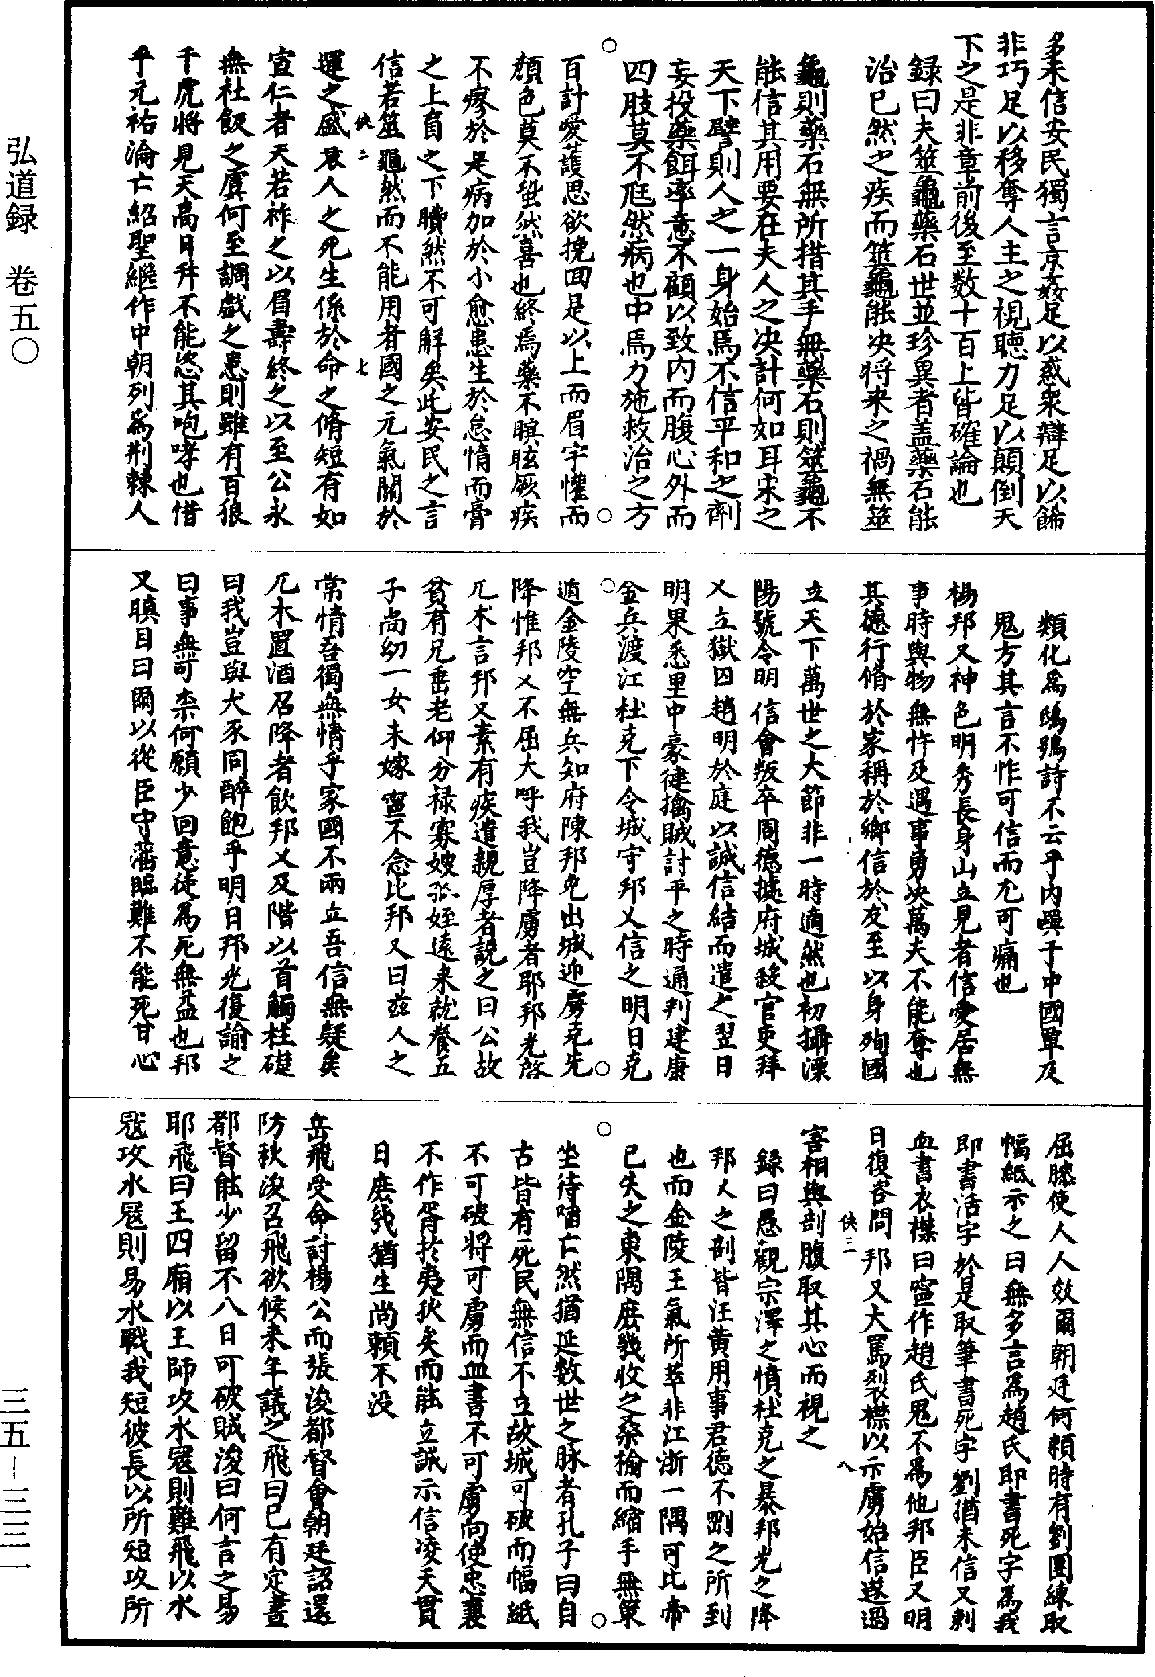 多未信安民獨言京姦足以惑衆辯足以飾
非巧足以移奪人主之視聽力足以顛倒天
下之是非章前後至数十百上皆確論也
録曰夫筮龜藥石世並珍異者盖藥石能
治已然之疾而筮龜能决将來之禍無筮
龜則藥石無所措其手無藥石則筮龜不
能信其用要在夫人之决計何如耳宋之
天下譬則人之一身始焉不信平和之劑
妄投藥餌率意不顧以致内而腹心外而
四肢莫不尫然病也中焉力施救治之方
百計愛護思欲挽回是以上而眉宇懽而
顔色莫不蛍然喜也終焉藥不瞑眩厥疾
不瘳於是病加於小愈患生於怠惰而膏
之上肓之下瞶然不可解矣此安民之言
信若筮龜然而不能用者國之元氣關於
運之盛衰人之死生係於命之脩短有如
宣仁者天若祚之以眉壽終之以至公永
無杜飯之虞何至調戲之患則雖有百狼
千虎將見天高日升不能恣其咆哮也惜
乎元祐淪亡紹聖繼作中朝列為荆棘人
類化為鴟鴞詩不云乎内奰于中國覃及
鬼方其言不怍可信而尤可痛也
楊邦乂神色明秀長身山立見者信愛居無
事時與物無忤及遇事勇决萬夫不能奪也
其德行脩於家稱於鄉信於友至以身殉國
立天下萬世之大節非一時適然也初攝溧
陽號令明信會叛卒周德據府城殺官吏拜
乂立獄囚趙明於庭以誠信結而遣之翌日
明果悉里中豪健擒賊討平之時通判建康
金兵渡江杜克下令城守邦乂信之明日克
遁金陵空無兵知府陳邦光出城迎虜克先
降惟邦乂不屈大呼我豈降虜者耶邦光啓
兀朮言邦乂素有疾遣親厚者説之曰公故
貧有兄垂老仰分禄寡嫂孤姪遠來就養五
子尚幼一女未嫁寧不念比邦乂曰兹人之
常情吾獨無情乎家國不兩立吾信無疑矣
兀朮置酒召降者飲邦乂及階以首觸柱礎
曰我豈與犬豕同醉飽乎明日邦光復諭之
曰事無可柰何願少回意徒為死無益也邦
又瞋目曰爾以從臣守藩臨難不能死甘心
屈膝使人人效爾朝廷何頼時有劉團練取
幅紙示之曰無多言為趙氏即書死字為我
即書活字於是取筆書死字劉猶未信又刺
血書衣襟曰寧作趙氏鬼不為他邦臣又明
日復客問邦乂大罵裂襟以示虜始信遂遇
害相與剖腹取其心而視之
録曰愚觀宗澤之憤杜克之暴邦光之降
邦乂之剖皆汪黄用事君德不剛之所到
也而金陵王氣所萃非江浙一隅可比帝
已失之東隅庶幾收之桑榆而縮手無策
坐待喑亡然猶延数世之脉者孔子曰自
古皆有死民無信不立故城可破而幅紙
不可破将可虜而血書不可虜向使忠襄
不作胥於夷狄矣而能立誠示信凌天貫
日庶幾猶生尚頼不没
岳飛受命討楊公而張浚都督會朝廷詔還
防秋浚召飛欲候来年議之飛曰已有定畫
都督能少留不八日可破賊浚曰何言之易
耶飛曰王四廂以王師攻水寇則難飛以水
寇攻水冦則易水戰我短彼長以所短攻所
弘道録　卷五〇
三五–三三一
伕二　七
伕三　八